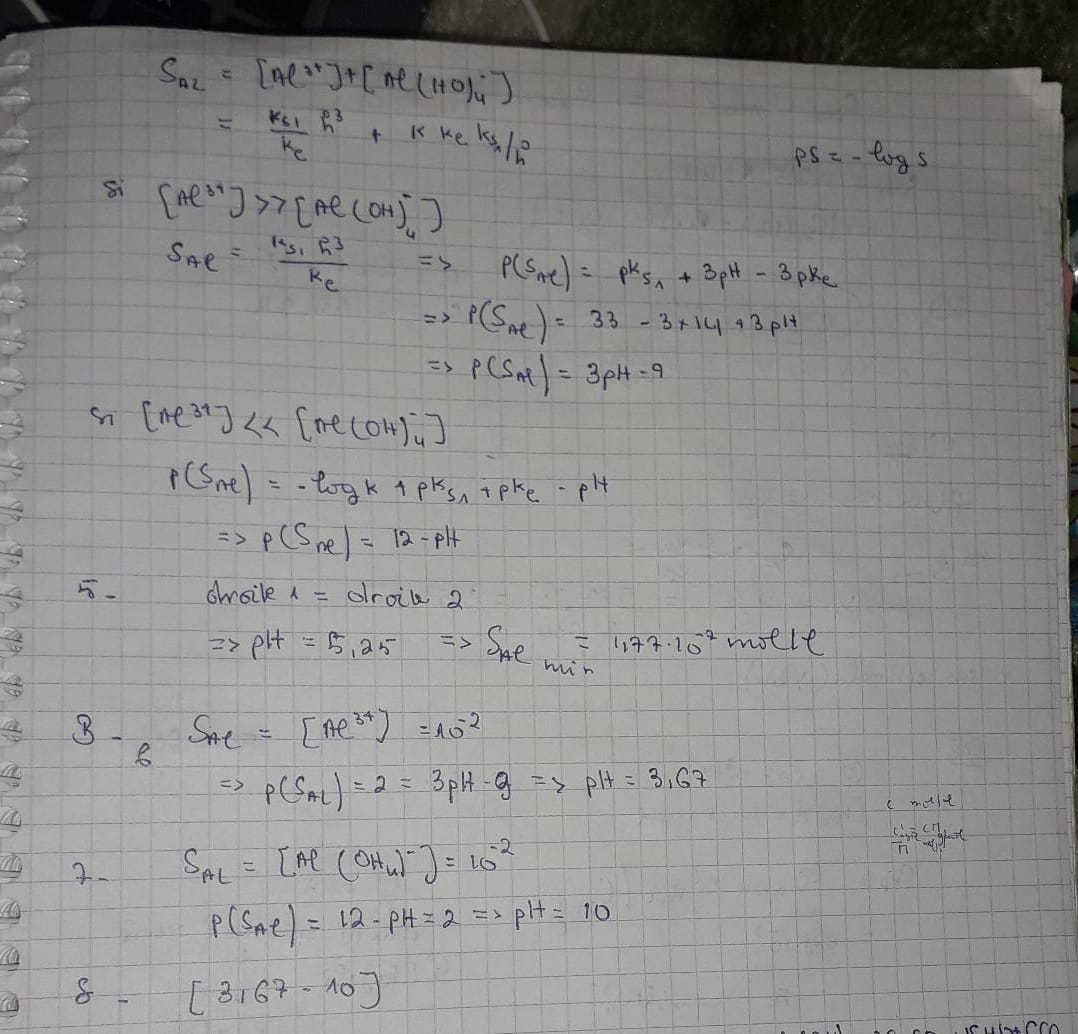 S_Al = [Al³⁺] + [Al(HO)₄⁻]
= Ks₁/Ke h³ + K Ke Ks₁/h
pS = - log s
Si [Al³⁺] >> [Al(OH)₄⁻]
S_Al = Ks₁ h³ / Ke => p(S_Al) = pKs₁ + 3pH - 3pKe
=> p(S_Al) = 33 - 3×14 + 3pH
=> p(S_Al) = 3pH - 9
Si [Al³⁺] << [Al(OH)₄⁻]
p(S_Al) = - log K + pKs₁ + pKe - pH
=> p(S_Al) = 12 - pH
5- droite 1 = droite 2
=> pH = 5,25 => S_Al min = 1,77.10⁻⁷ mol/l
3 - 6 S_Al = [Al³⁺] = 10⁻²
=> p(S_Al) = 2 = 3pH - 9 => pH = 3,67
c mol/l
7- S_Al = [Al(OH₄)⁻] = 10⁻²
p(S_Al) = 12 - pH = 2 => pH = 10
8 - [3,67 - 10]